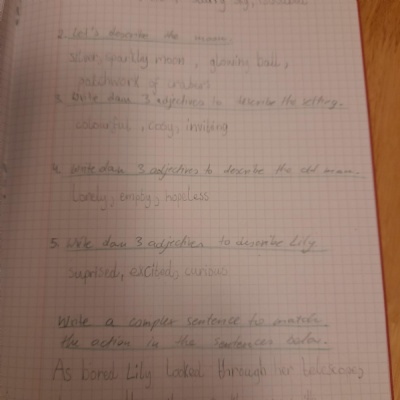 starry sky,
2. Let's describe the moon.
sparkly moon, glowing ball,
patchwork of craters
3. Write down 3 adjectives to describe the setting.
colourful, cosy, inviting
4. Write down 3 adjectives to describe the old man.
Lonely, empty, hopeless
5. Write down 3 adjectives to describe Lily.
suprised, excited, curious
Write a complex sentence to match
the action in the sentences below.
As bored Lily looked through her telescope,